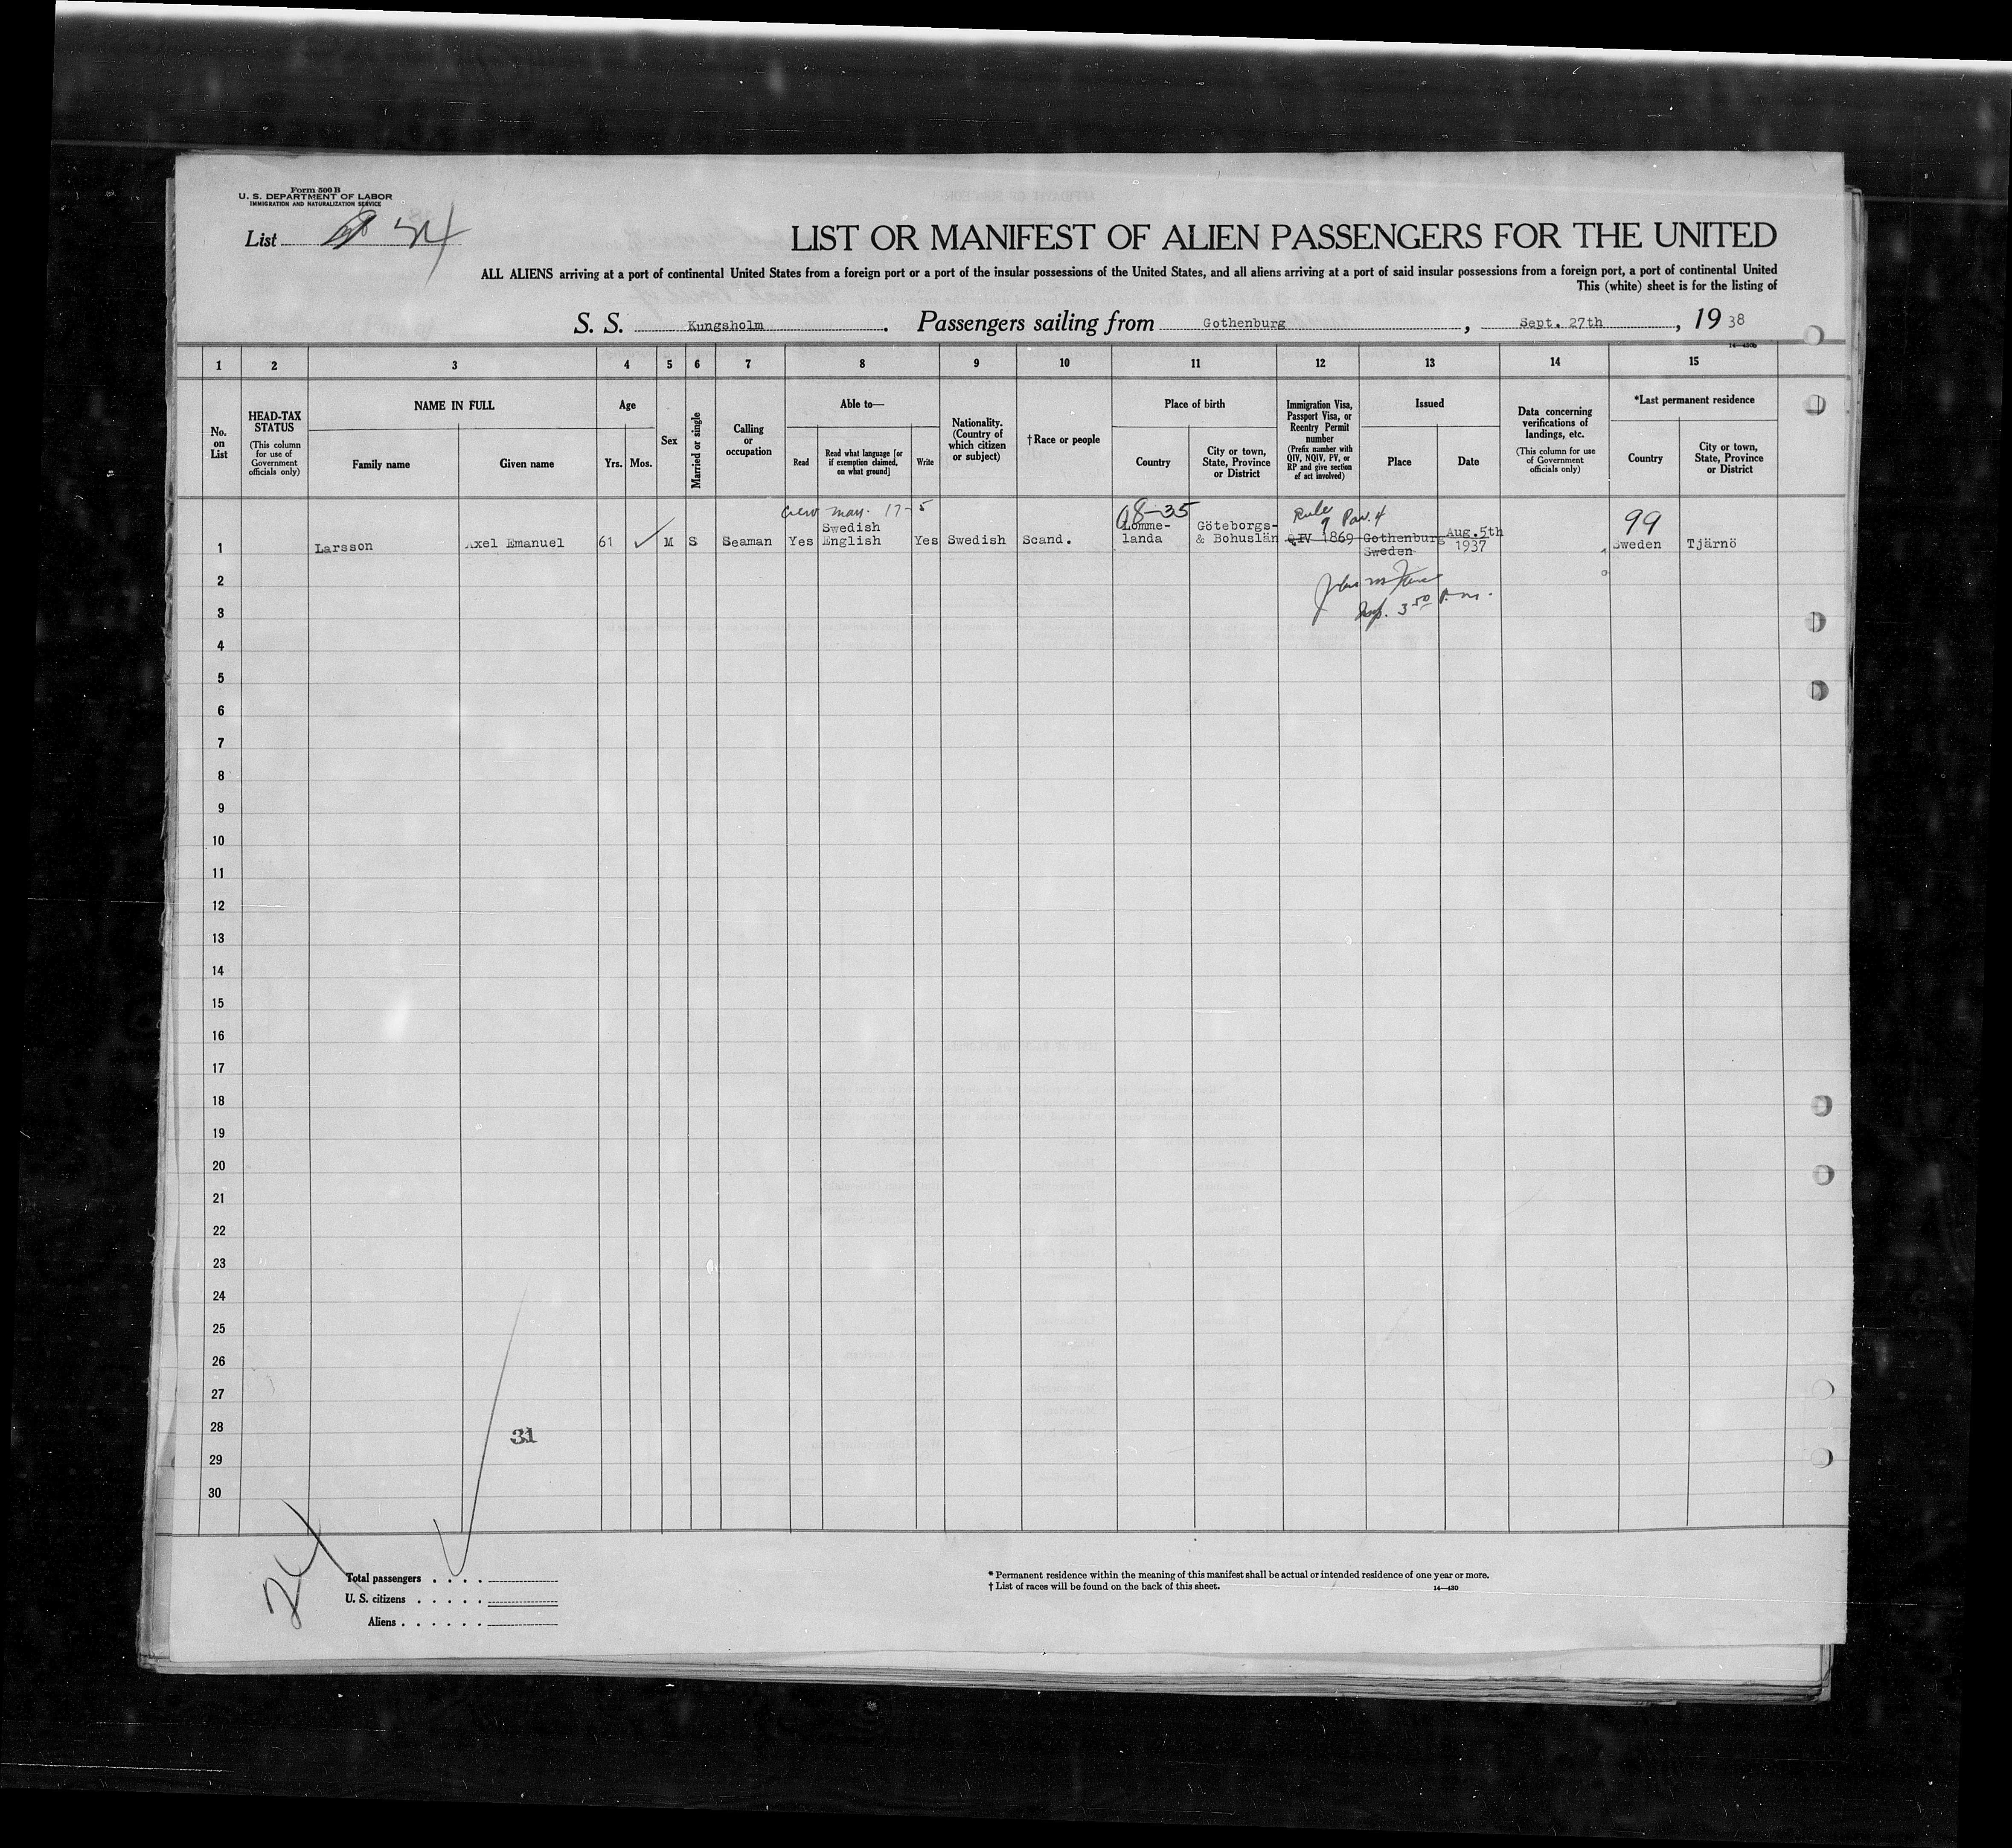 Form 500 B
U. S. DEPARTMENT OF LABOR
IMMIGRATION AND NATURALIZATION SERVICE
List 24
LIST OR MANIFEST OF ALIEN PASSENGERS FOR THE UNITED
ALL ALIENS arriving at a port of continental United States from a foreign port or a port of the insular possessions of the United States, and all aliens arriving at a port of said insular possessions from a foreign port, a port of continental United
This (white) sheet is for the listing of
S. S. Kungsholm. Passengers sailing from Gothenburg, Sept. 27th, 1938
1 2 3 4 5 6 7 8 9 10 11 12 13 14 15
No. on List
HEAD-TAX STATUS
(This column for use of Government officials only)
NAME IN FULL
Family name
Given name
Age
Yrs. Mos.
Sex
Married or single
Calling or occupation
Able to—
Read
Read what language [or if exemption claimed, on what ground]
Write
Nationality. (Country of which citizen or subject)
†Race or people
Place of birth
Country
City or town, State, Province or District
Immigration Visa, Passport Visa, or Reentry Permit number
(Prefix number with QIV, NQIV, PV, or RP and give section of act involved)
Issued
Place
Date
Data concerning verifications of landings, etc.
(This column for use of Government officials only)
*Last permanent residence
Country
City or town, State, Province or District
17-5
Rule 9 Par. 4
99
1 Larsson Axel Emanuel 61 M S Seaman Yes Swedish English Yes Swedish Scand. Lommelanda Göteborgs- & Bohuslän QIV 1869 Gothenburg Sweden Aug. 5th 1937 Sweden Tjärnö
3 50 P.m.
2
3
4
5
6
7
8
9
10
11
12
13
14
15
16
17
18
19
20
21
22
23
24
25
26
27
28
31
29
30
24
Total passengers . . . .
U. S. citizens . . . . .
Aliens . . . . . .
* Permanent residence within the meaning of this manifest shall be actual or intended residence of one year or more.
† List of races will be found on the back of this sheet.
14—430